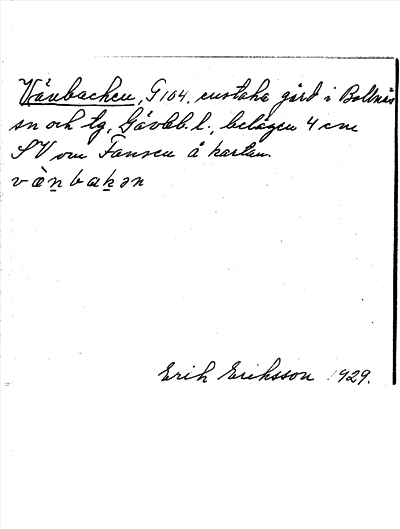 Vånbacken, G104, enstaka gård i Bollnäs
sn och tg, Gävleb. l., belägen 4 cm
SV om Fansen å kartan.
vånbakən
Erik Eriksson 1929.